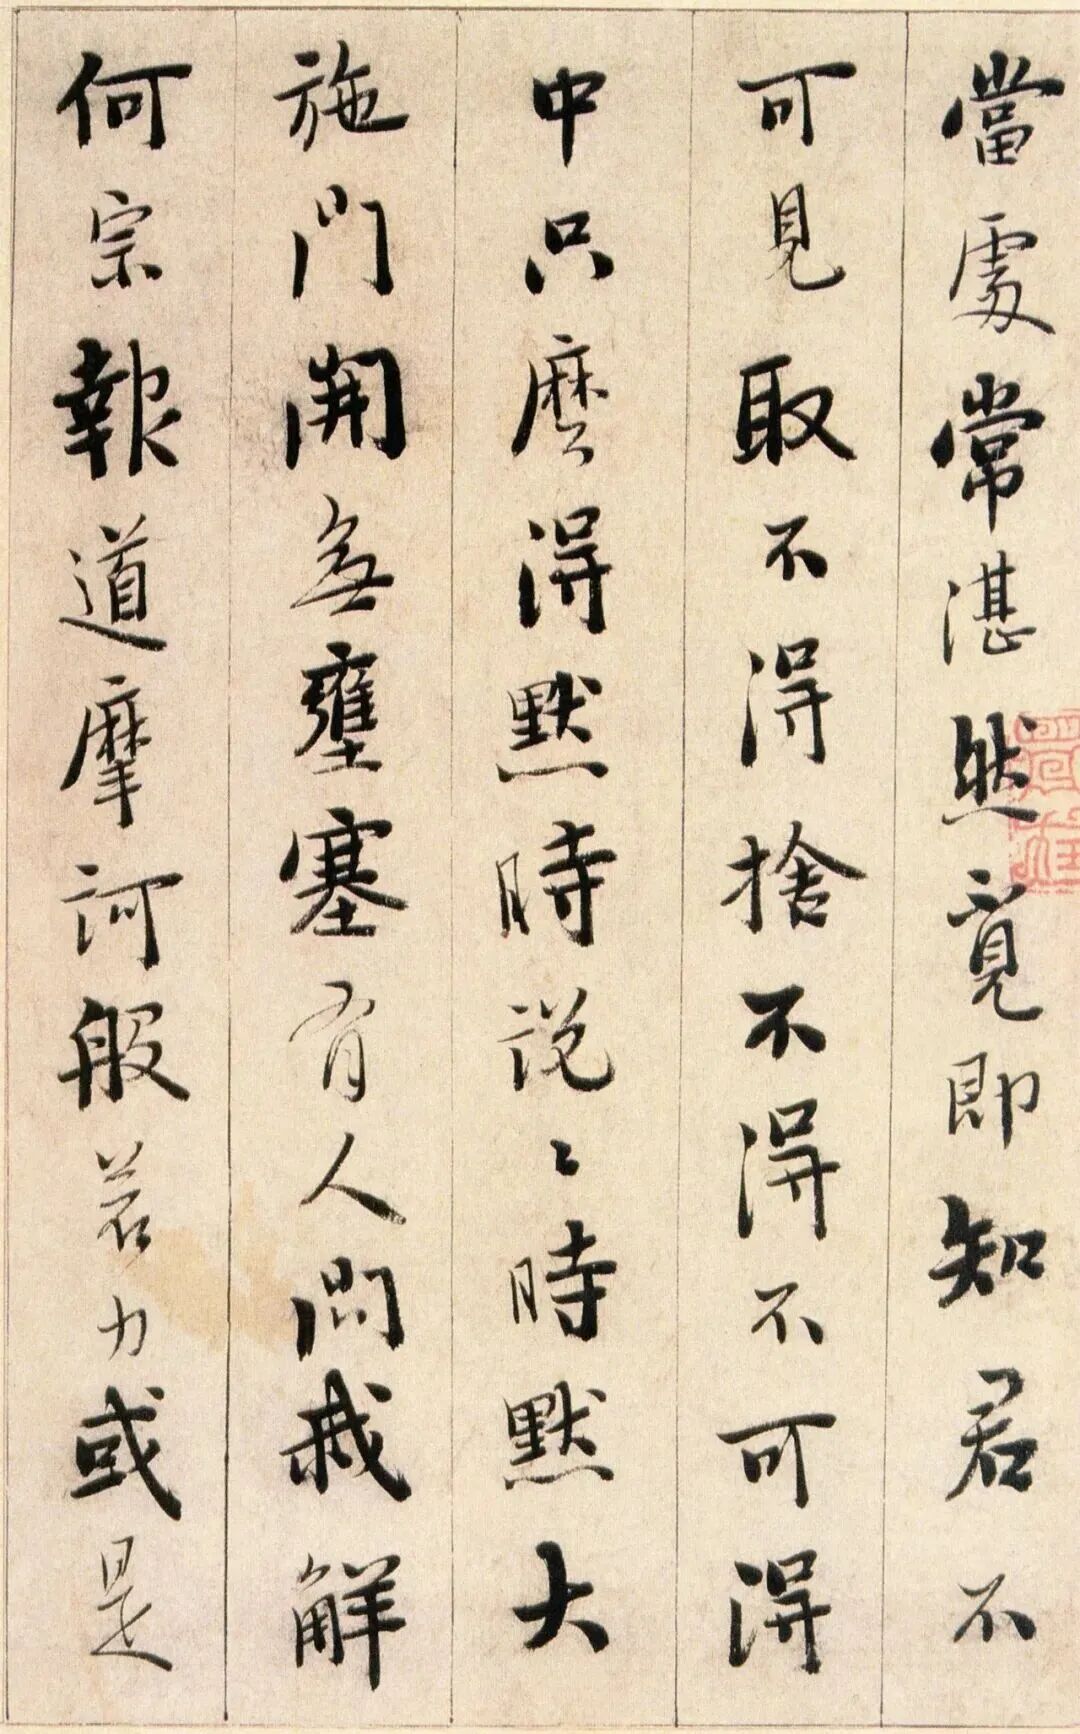 當處常湛然覓即知君不
可見取不得捨不得不可得
中只麼得默時説〻時默大
施門開無壅塞有人問我解
何宗報道摩訶般若力或是